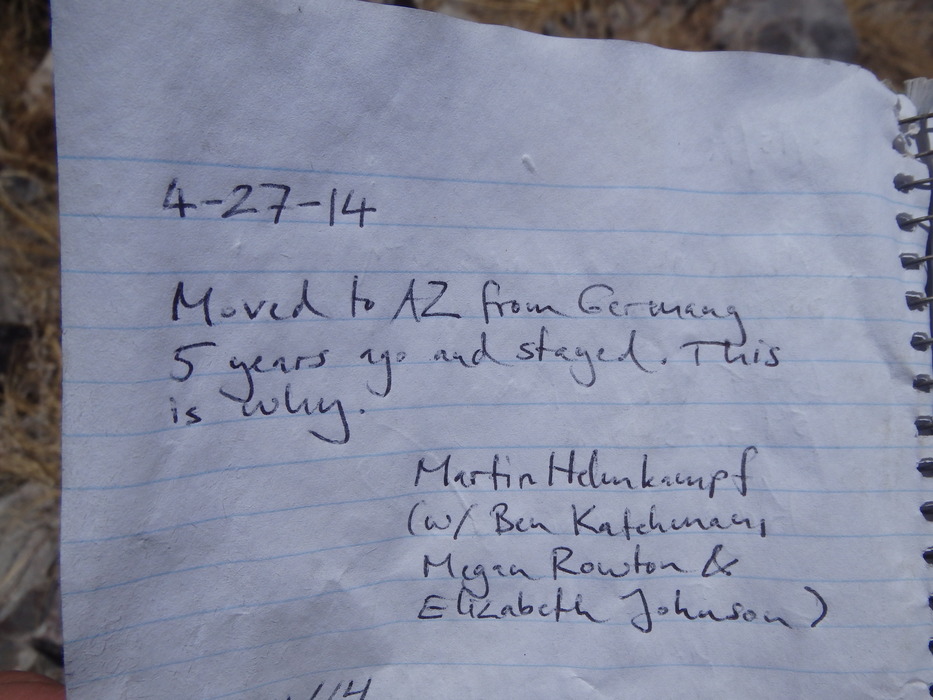 4-27-14
Moved to AZ from Germany
5 years ago and stayed. This
is why.
Martin Helmkampf
(w/ Ben Katchman,
Megan Rowton &
Elizabeth Johnson)